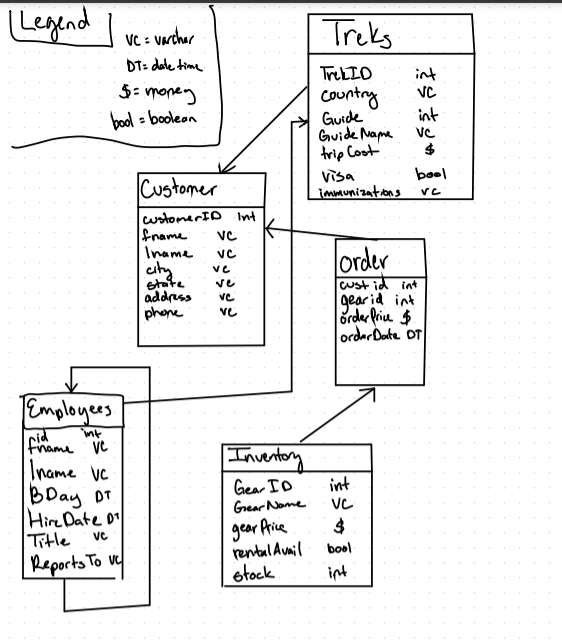 Legend
VC = varchar
DT = date time
$ = money
bool = boolean
Treks
TrekID int
country VC
Guide int
GuideName VC
tripCost $
Visa bool
immunizations VC
Customer
customerID Int
fname VC
lname VC
city VC
state VC
address VC
phone VC
order
cust id int
gear id int
orderPrice $
orderDate DT
Employees
id int
fname VC
lname VC
BDay DT
HireDate DT
Title VC
ReportsTo VC
Inventory
Gear ID int
GearName VC
gearPrice $
rentalAvail bool
stock int